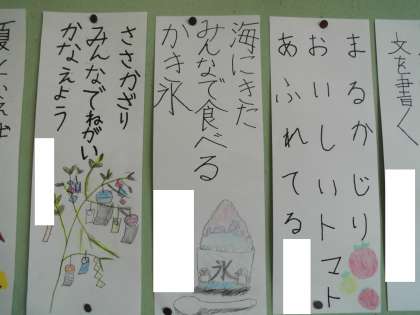 文を書く
まるかじり
おいしいトマト
あふれてる
海にきた
みんなで食べる
かき氷
氷
ささかざり
みんなでねがい
かなえよう
夏といえば